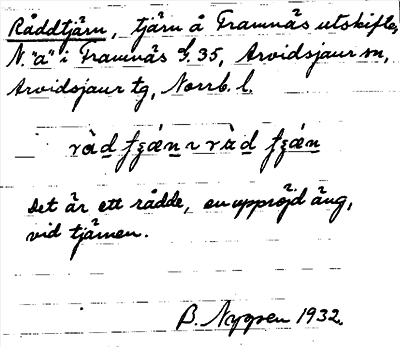 Råddtjärn, tjärn å Framnäs utskifter,
N. "a" i Framnäs S. 35, Arvidsjaur sn,
Arvidsjaur tg, Norrb. l.
Det är ett rådde, en uppröjd äng,
vid tjärnen.
B. Nygren 1932.